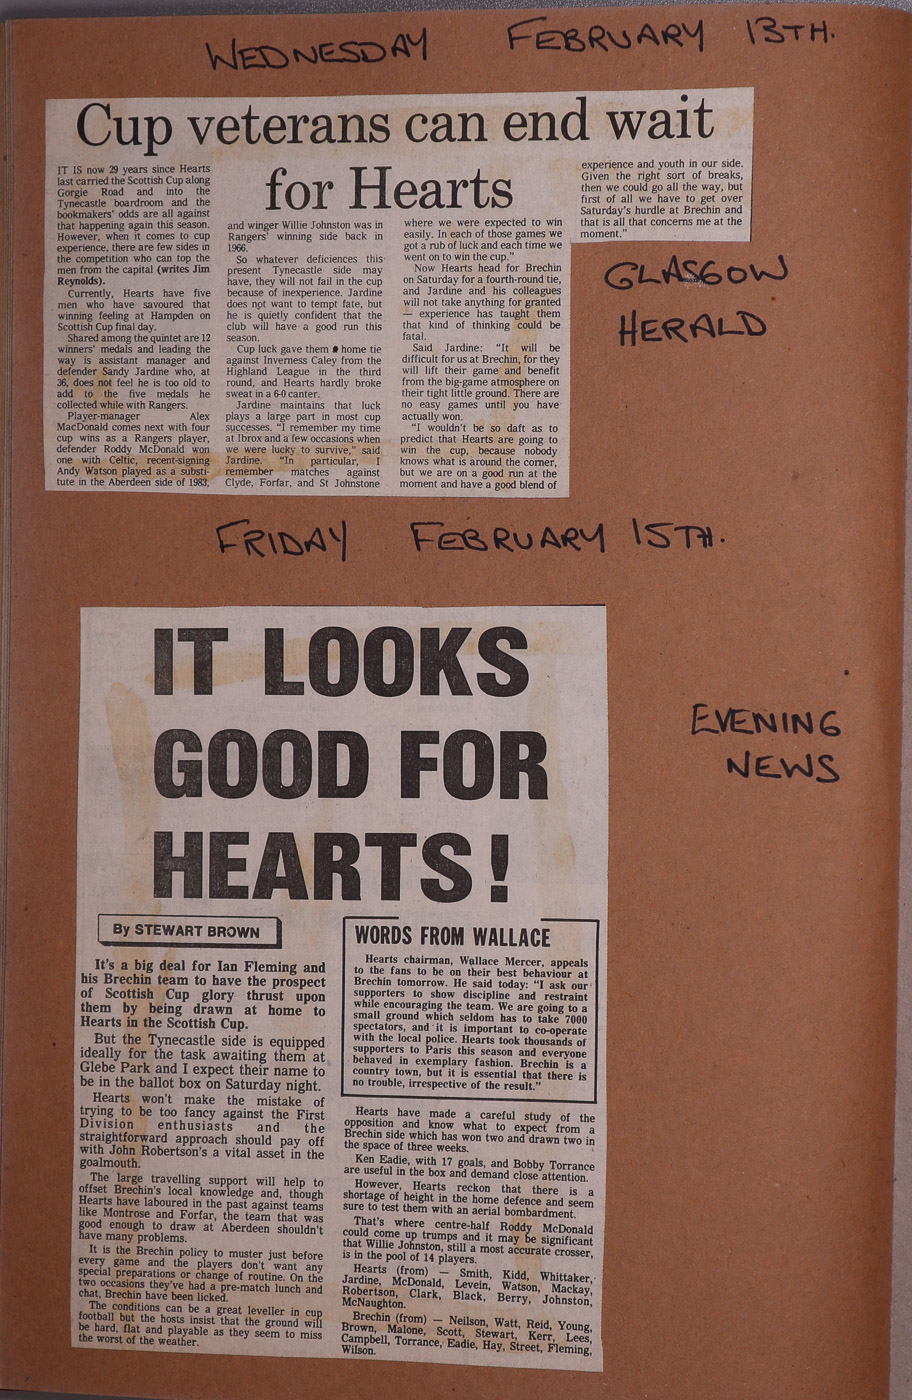 WEDNESDAY FEBRUARY 13TH.
Cup veterans can end wait
for Hearts
IT IS now 29 years since Hearts
last carried the Scottish Cup along
Gorgie Road and into the
Tynecastle boardroom and the
bookmakers' odds are all against
that happening again this season.
However, when it comes to cup
experience, there are few sides in
the competition who can top the
men from the capital (writes Jim
Reynolds).
Currently, Hearts have five
men who have savoured that
winning feeling at Hampden on
Scottish Cup final day.
Shared among the quintet are 12
winners' medals and leading the
way is assistant manager and
defender Sandy Jardine who, at
36, does not feel he is too old to
add to the five medals he
collected while with Rangers.
Player-manager Alex
MacDonald comes next with four
cup wins as a Rangers player,
defender Roddy McDonald won
one with Celtic, recent-signing
Andy Watson played as a substi-
tute in the Aberdeen side of 1983,
and winger Willie Johnston was in
Rangers' winning side back in
1966.
So whatever deficiences this
present Tynecastle side may
have, they will not fail in the cup
because of inexperience. Jardine
does not want to tempt fate, but
he is quietly confident that the
club will have a good run this
season.
Cup luck gave them a home tie
against Inverness Caley from the
Highland League in the third
round, and Hearts hardly broke
sweat in a 6-0 canter.
Jardine maintains that luck
plays a large part in most cup
successes. "I remember my time
at Ibrox and a few occasions when
we were lucky to survive," said
Jardine. "In particular, I
remember matches against
Clyde, Forfar, and St Johnstone
where we were expected to win
easily. In each of those games we
got a rub of luck and each time we
went on to win the cup."
Now Hearts head for Brechin
on Saturday for a fourth-round tie,
and Jardine and his colleagues
will not take anything for granted
— experience has taught them
that kind of thinking could be
fatal.
Said Jardine: "It will be
difficult for us at Brechin, for they
will lift their game and benefit
from the big-game atmosphere on
their tight little ground. There are
no easy games until you have
actually won.
"I wouldn't be so daft as to
predict that Hearts are going to
win the cup, because nobody
knows what is around the corner,
but we are on a good run at the
moment and have a good blend of
experience and youth in our side.
Given the right sort of breaks,
then we could go all the way, but
first of all we have to get over
Saturday's hurdle at Brechin and
that is all that concerns me at the
moment."
GLASGOW
HERALD
FRIDAY FEBRUARY 15TH.
IT LOOKS
GOOD FOR
HEARTS!
EVENING
NEWS
By STEWART BROWN
It's a big deal for Ian Fleming and
his Brechin team to have the prospect
of Scottish Cup glory thrust upon
them by being drawn at home to
Hearts in the Scottish Cup.
But the Tynecastle side is equipped
ideally for the task awaiting them at
Glebe Park and I expect their name to
be in the ballot box on Saturday night.
Hearts won't make the mistake of
trying to be too fancy against the First
Division enthusiasts and the
straightforward approach should pay off
with John Robertson's a vital asset in the
goalmouth.
The large travelling support will help to
offset Brechin's local knowledge and, though
Hearts have laboured in the past against teams
like Montrose and Forfar, the team that was
good enough to draw at Aberdeen shouldn't
have many problems.
It is the Brechin policy to muster just before
every game and the players don't want any
special preparations or change of routine. On the
two occasions they've had a pre-match lunch and
chat, Brechin have been licked.
The conditions can be a great leveller in cup
football but the hosts insist that the ground will
be hard, flat and playable as they seem to miss
the worst of the weather.
WORDS FROM WALLACE
Hearts chairman, Wallace Mercer, appeals
to the fans to be on their best behaviour at
Brechin tomorrow. He said today: "I ask our
supporters to show discipline and restraint
while encouraging the team. We are going to a
small ground which seldom has to take 7000
spectators, and it is important to co-operate
with the local police. Hearts took thousands of
supporters to Paris this season and everyone
behaved in exemplary fashion. Brechin is a
country town, but it is essential that there is
no trouble, irrespective of the result."
Hearts have made a careful study of the
opposition and know what to expect from a
Brechin side which has won two and drawn two in
the space of three weeks.
Ken Eadie, with 17 goals, and Bobby Torrance
are useful in the box and demand close attention.
However, Hearts reckon that there is a
shortage of height in the home defence and seem
sure to test them with an aerial bombardment.
That's where centre-half Roddy McDonald
could come up trumps and it may be significant
that Willie Johnston, still a most accurate crosser,
is in the pool of 14 players.
Hearts (from) — Smith, Kidd, Whittaker,
Jardine, McDonald, Levein, Watson, Mackay,
Robertson, Clark, Black, Berry, Johnston,
McNaughton.
Brechin (from) — Neilson, Watt, Reid, Young,
Brown, Malone, Scott, Stewart, Kerr, Lees,
Campbell, Torrance, Eadie, Hay, Street, Fleming,
Wilson.